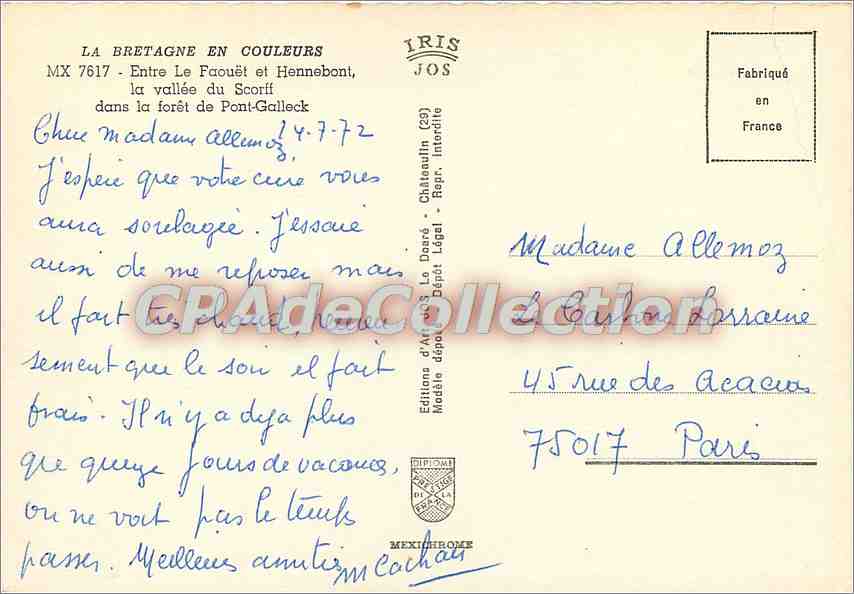 LA BRETAGNE EN COULEURS
MX 7617 - Entre Le Faouët et Hennebont,
la vallée du Scorff
dans la forêt de Pont-Galleck
Chère Madame Allemoz 14-7-72
J'espère que votre cure vous
aura soulagée. J'essaie
aussi de me reposer mais
il fait très chaud, heureu
sement que le soir il fait
frais. Il n'y a deja plus
que quinze jours de vacances,
on ne voit pas le temps
passer. Meilleures amitiés
M Cachan
IRIS
JOS
Editions d'Art JOS Le Doaré - Châteaulin (29)
Modèle déposé - Dépôt Légal - Repr. Interdite
DIPLOME
PRESTIGE
DE LA
FRANCE
MEXICHROME
Fabriqué
en
France
Madame Allemoz
Carbone Lorraine
45 rue des Acacias
75017 Paris
CPAdeCollection